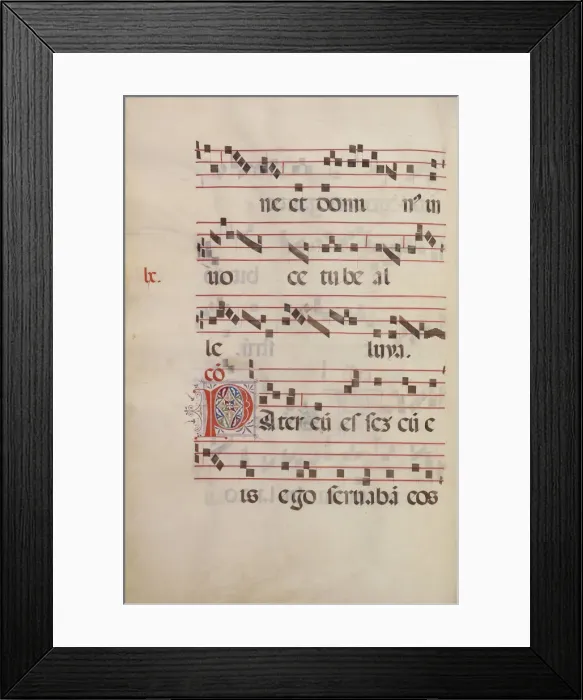 ne et domi n⁹ in
uo ce tube al
lx.
le luya.
cō
Pater cū essez cū e
is ego seruabā eos